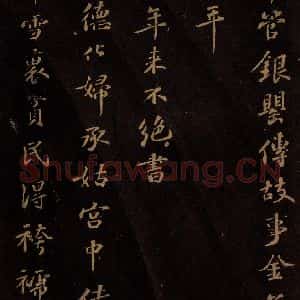 管銀罌傳故事金
年
年來不絕書
德化婦承姑宮中
雪裏貧民得袴襦
Shufawang.CN